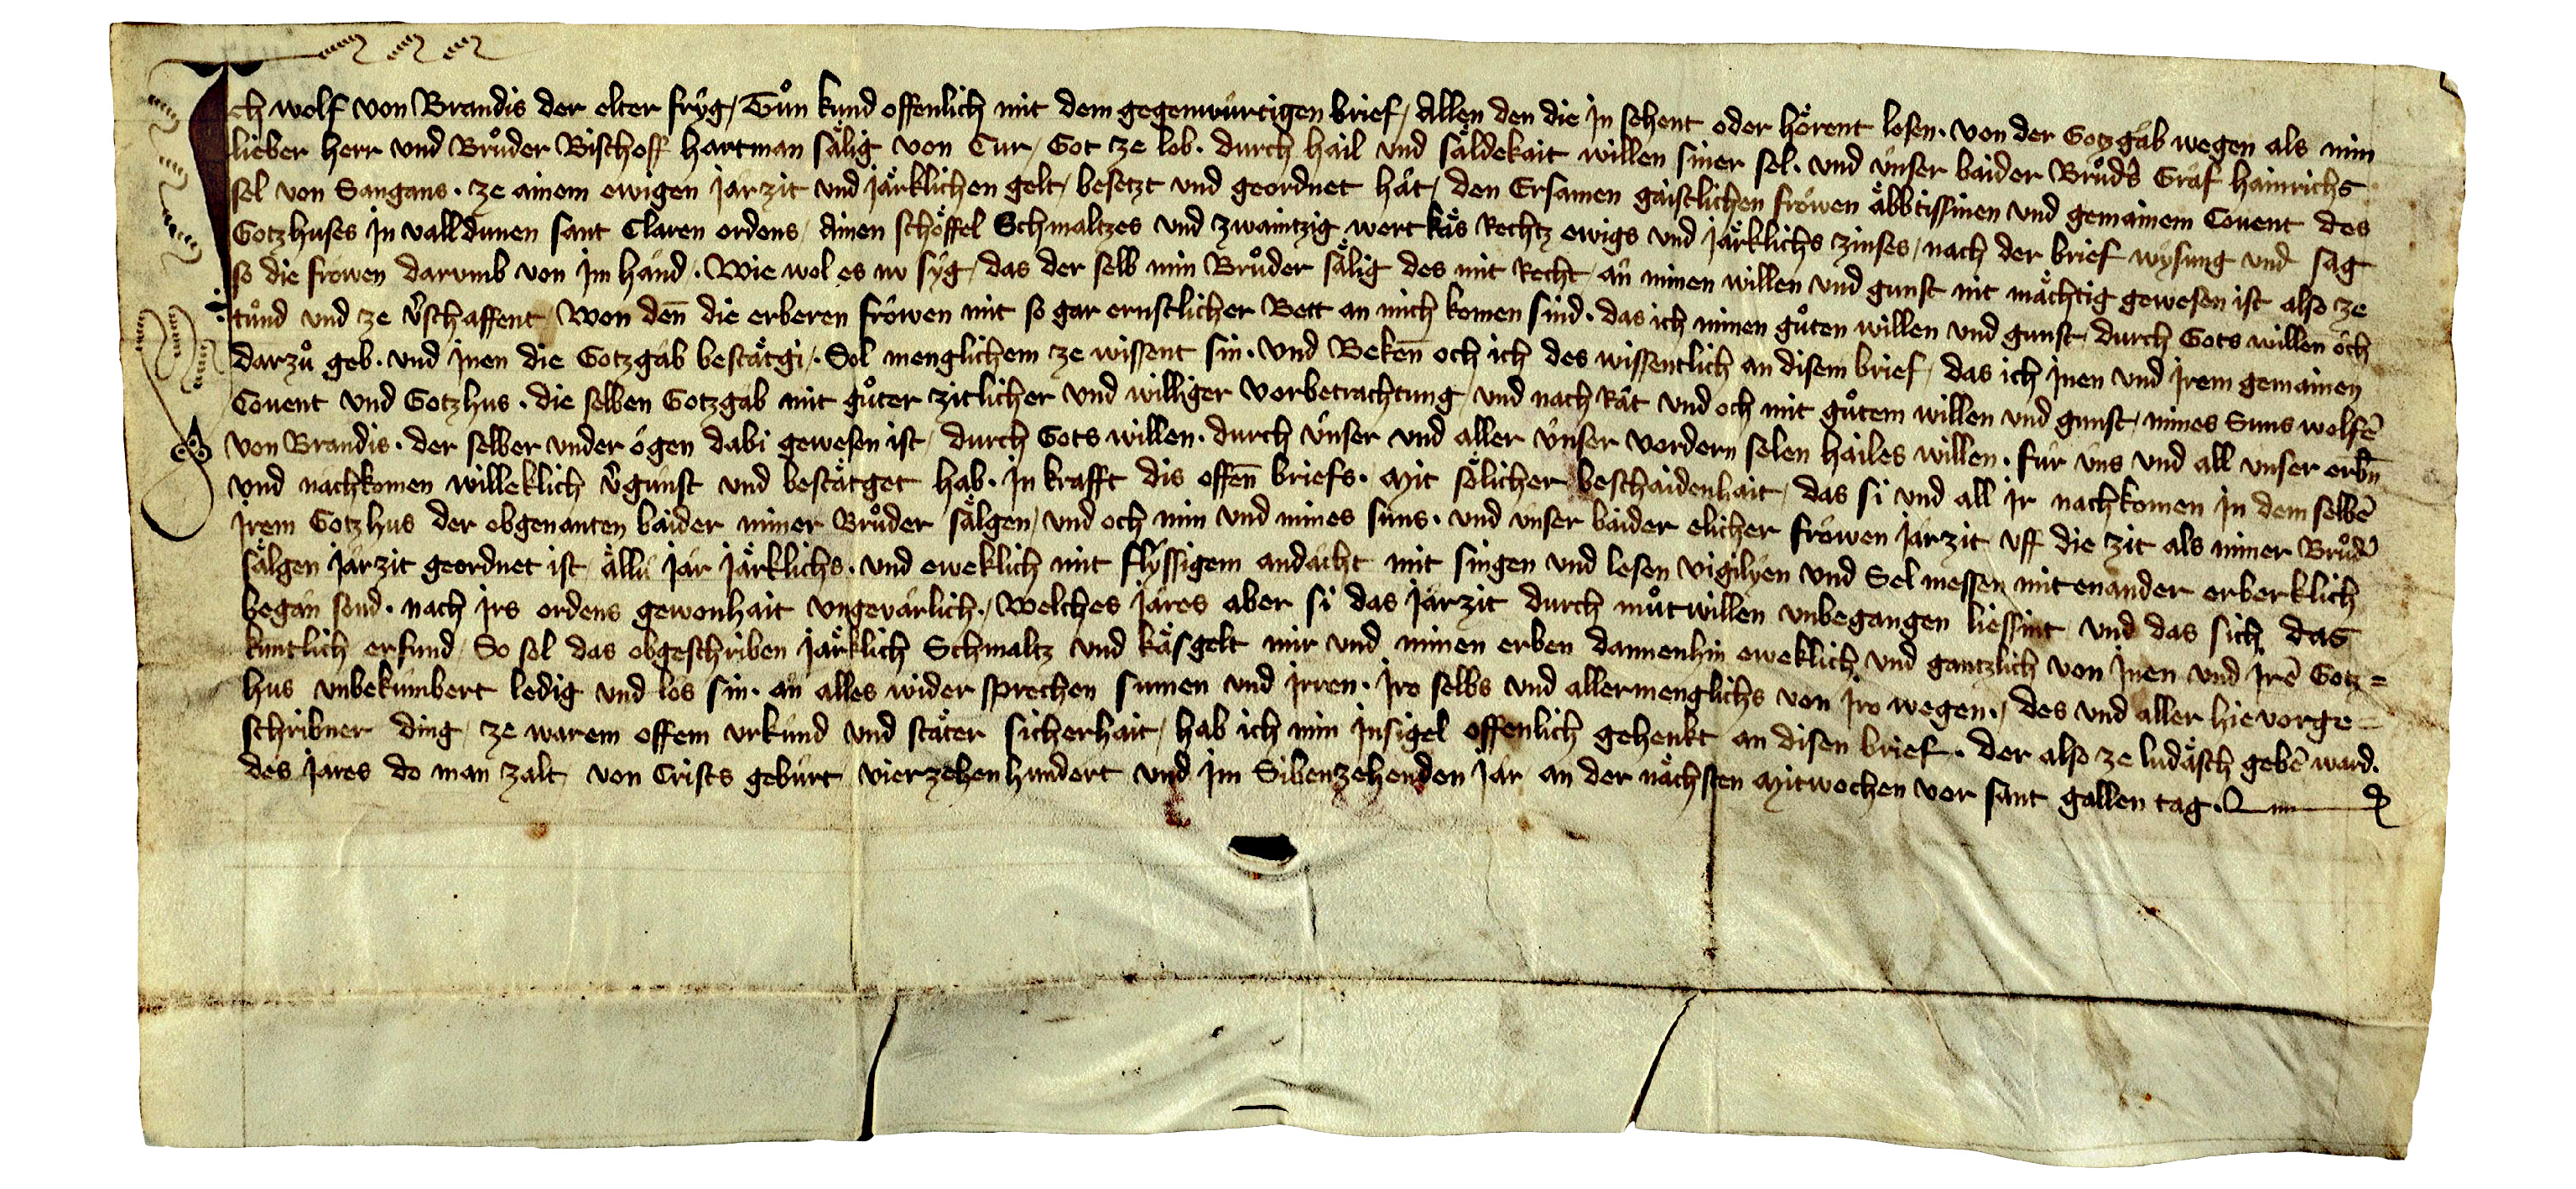 Ich wolf von Brandis der elter fryͤg, Tuͦn kund offenlich mit dem gegenwuͥrtigen brief, Allen den die jn sehent oder hoͤrent lesen. von der Gotzgab wegen als min
lieber herr vnd Bruͦder Bischoff hartman saͤlig von Cur, Got ze lob. durch hail vnd saͤldekait willen siner sel. vnd vͥnser baider Bruͦdˢs Graf hainrichs
sel von Sangans. ze ainem ewigen jarzit vnd jaͤrklichen gelt, besetzt vnd geordnet haͮt, den Ersamen gaistlichen froͮwen aͤbbtissinen vnd gemainem Couent des
Gotzhuses jn valldunen sant Claren ordens, Ainen schoͤffel Schmaltzes vnd zwaintzig wert kaͤs Rechtz ewigs vnd jaͤrklichs zinses, nach der brief wysung vnd sag
so die froͮwen darvmb von jm hand. Wie wol es nv syͤg, das der selb min Bruͦder saͤlig des mit Recht, aͮn minen willen vnd gunst nit maͤchtig gewesen ist also ze
tuͦnd vnd ze vˢschaffent, Won deñ die erberen froͮwen mit so gar ernstlicher Bett an mich komen sind. das ich minen guͦten willen vnd gunst durch Gots willen oͮch
darzuͦ geb. vnd jnen die Gotzgab bestaͤtgi,. Sol menglichem ze wissent sin. vnd Bekeñ och ich des wissentlich an disem brief, das ich jnen vnd jrem gemainen
Couent vnd Gotzhus. die selben Gotzgab mit guͦter zitlicher vnd williger vorbetrachtung, vnd nach Raͮt vnd och mit guͦtem willen vnd gunst, mines Suns wolfē
von Brandis. der selber vnder oͮgen dabi gewesen ist, durch Gots willen. durch vͥnser vnd aller vͥnser vordern selen hailes willen. fuͥr vͥns vnd all vnser erbn̄
vnd nachkomen willeklich vˢgunst vnd bestaͤtget hab. jn krafft dis offeñ briefs. Mit soͤlicher beschaidenhait, das si vnd all jr nachkomen jn dem selbē
jrem Gotzhus der obgenanten baider miner Bruͦder saͤlgen, vnd och min vnd mines suns. vnd vͥnser baider elicher froͮwen jarzit vff die zit als miner Bruͦdˢ
saͤlgen jarzit geordnet ist, aͤlluͥ jar jaͤrklichs. vnd eweklich mit flyssigem andacht mit singen vnd lesen vigilyen vnd Selmessen mitenander erberklich
began sond. nach jrs ordens gewonhait vngevarlich., Welches jares aber si das jarzit durch muͦtwillen vnbegangen liessint vnd das sich das
kuntlich erfund, So sol das obgeschriben jaͤrklich Schmaltz vnd kaͤsgelt mir vnd minen erben dannenhin eweklich vnd gantzlich von jnen vnd jrē Gotz=
hus vnbekuͥmbert ledig vnd los sin. aͮn alles wider sprechen sumen vnd jrren. jro selbs vnd allermenglichs von jro wegen., des vnd aller hievorge=
schribner ding, ze warem offem vrkuͥnd vnd staͤter sicherhait, hab ich min jnsigel offenlich gehenkt an disen brief. der also ze ludaͤsch gebē ward.
des jares do man zalt von Crists geburt vierzehenhundert vnd jm Sibenzehenden jar an der naͤchsten Mitwochen vor sant gallen tag.